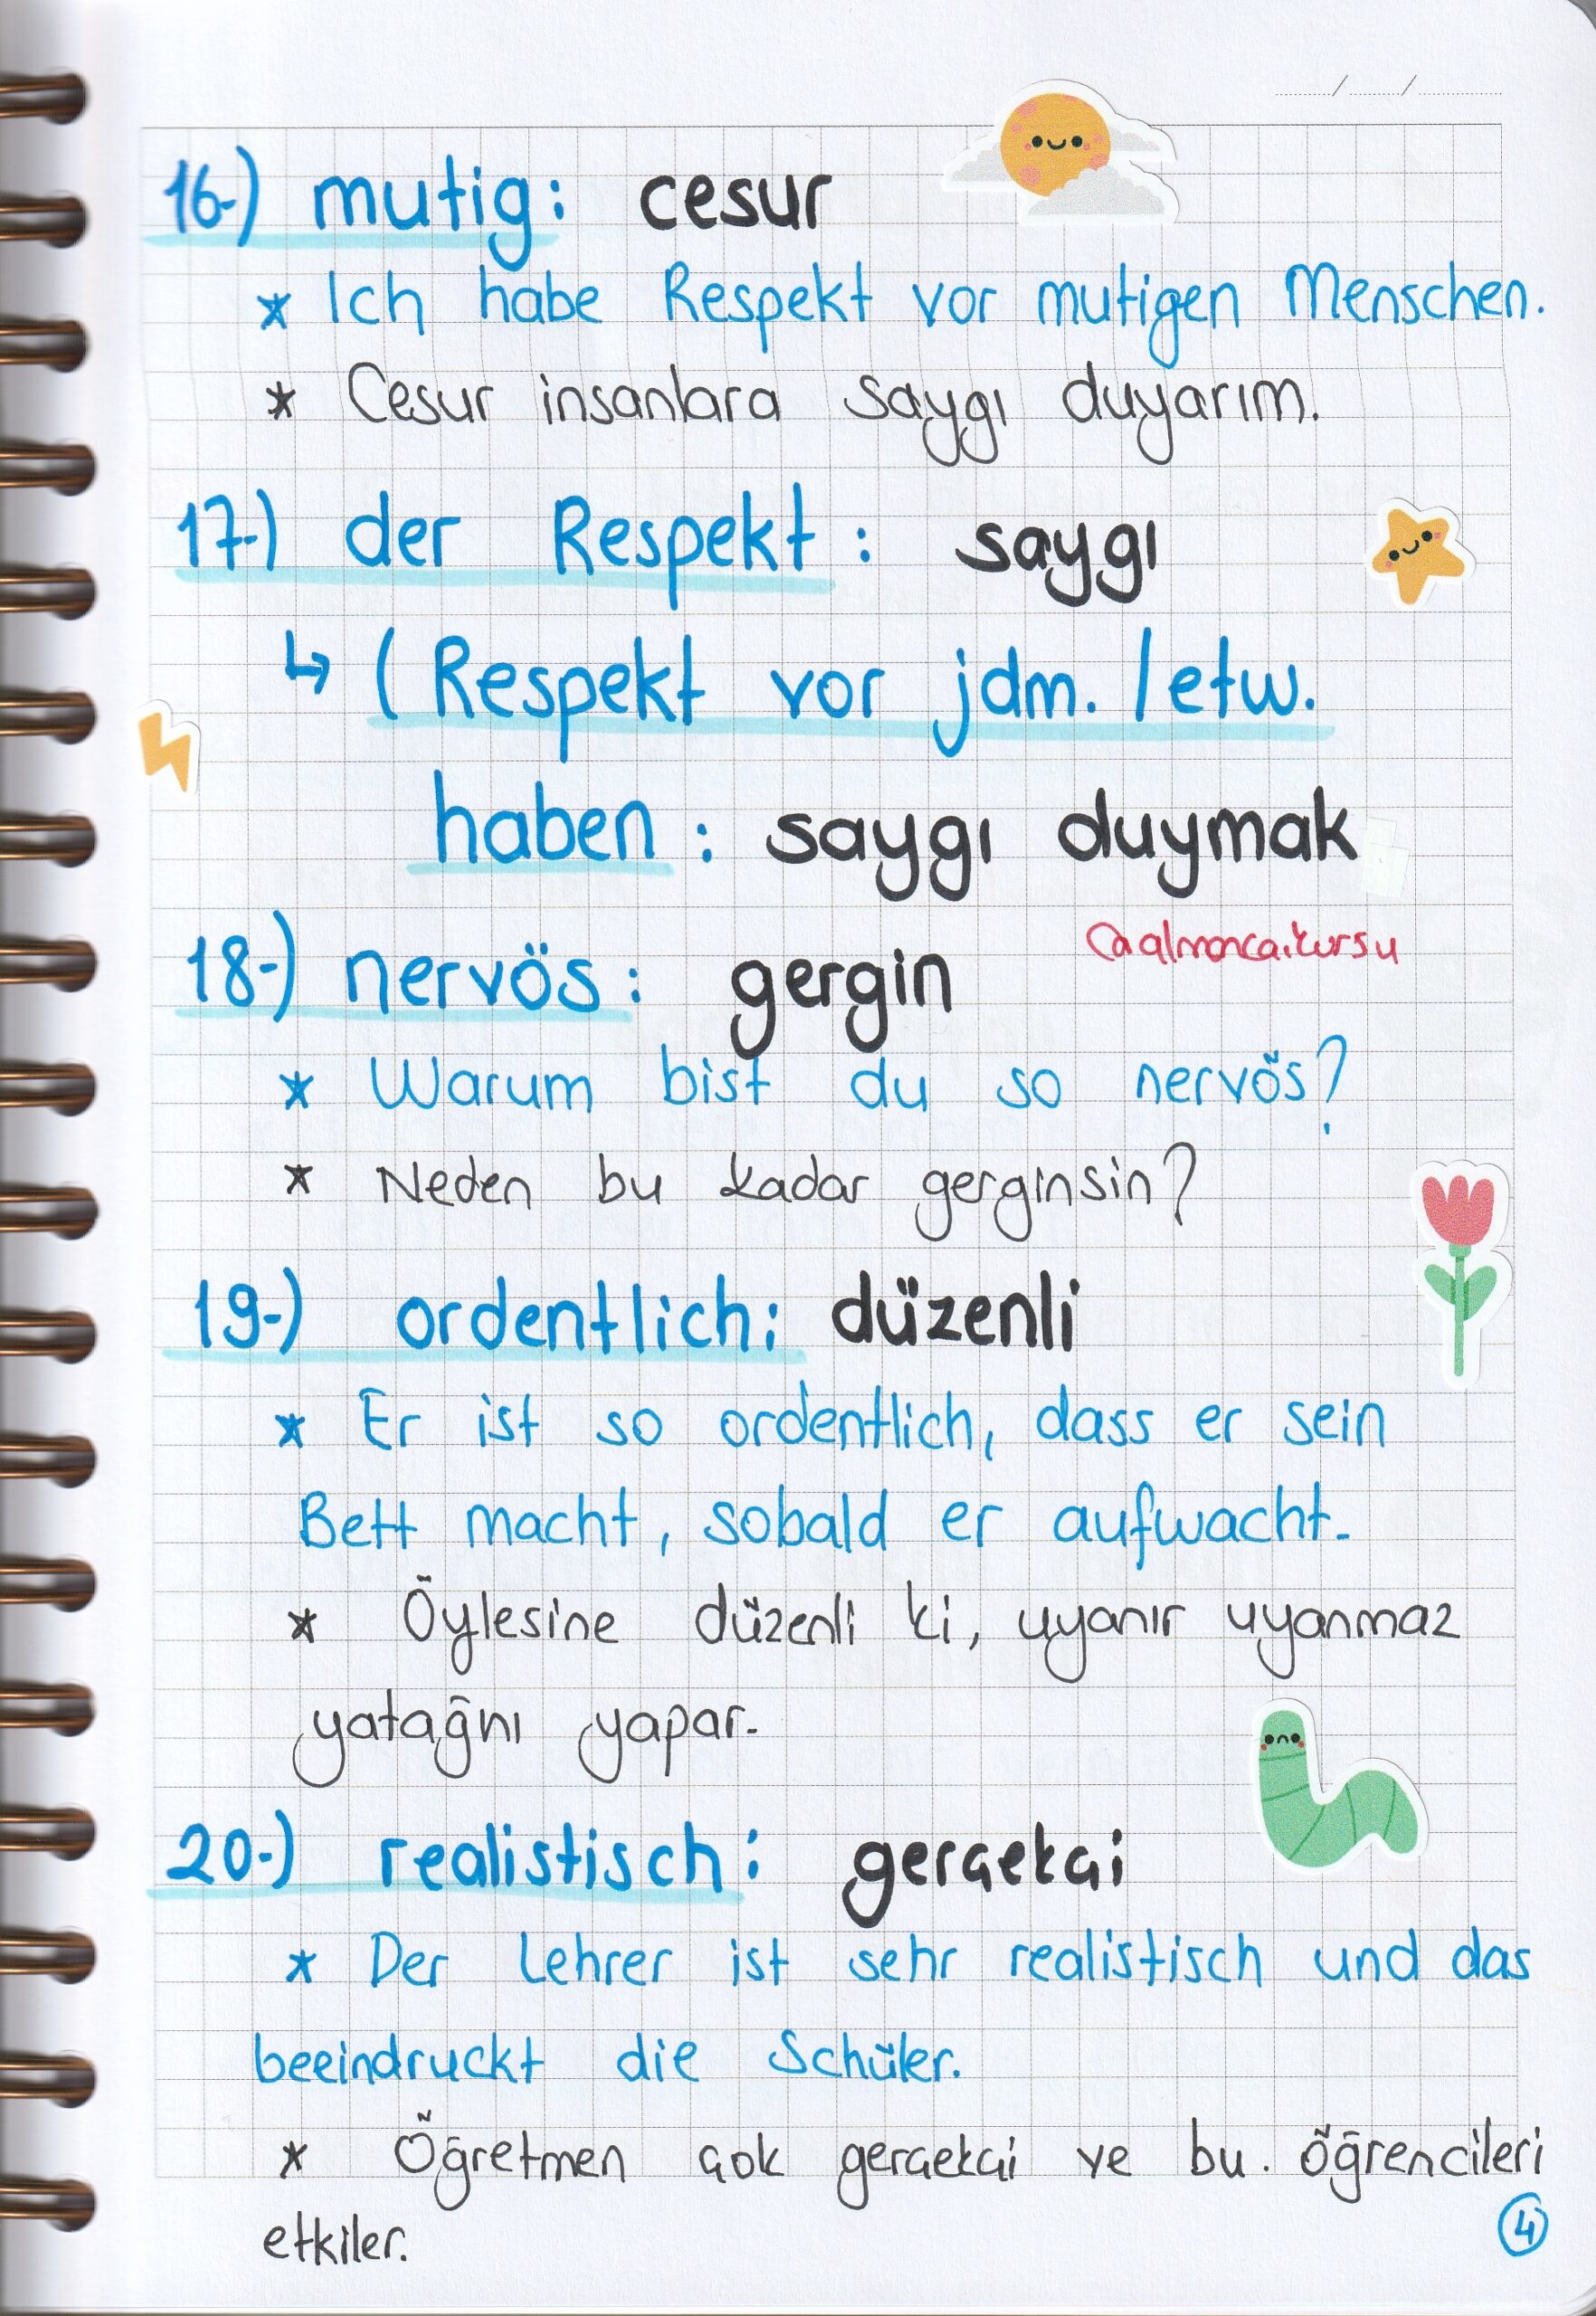 16-) mutig: cesur
* Ich habe Respekt vor mutigen Menschen.
* Cesur insanlara saygı duyarım.
17-) der Respekt: saygı
↳ (Respekt vor jdm. / etw.
haben: saygı duymak
@almanca.kursu
18-) nervös: gergin
* Warum bist du so nervös?
* Neden bu kadar gerginsin?
19-) ordentlich: düzenli
* Er ist so ordentlich, dass er sein
Bett macht, sobald er aufwacht.
* Öylesine düzenli ki, uyanır uyanmaz
yatağnı yapar.
20-) realistisch: gerçekçi
* Der Lehrer ist sehr realistisch und das
beeindruckt die Schüler.
* Öğretmen çok gerçekçi ve bu öğrencileri
etkiler.
4